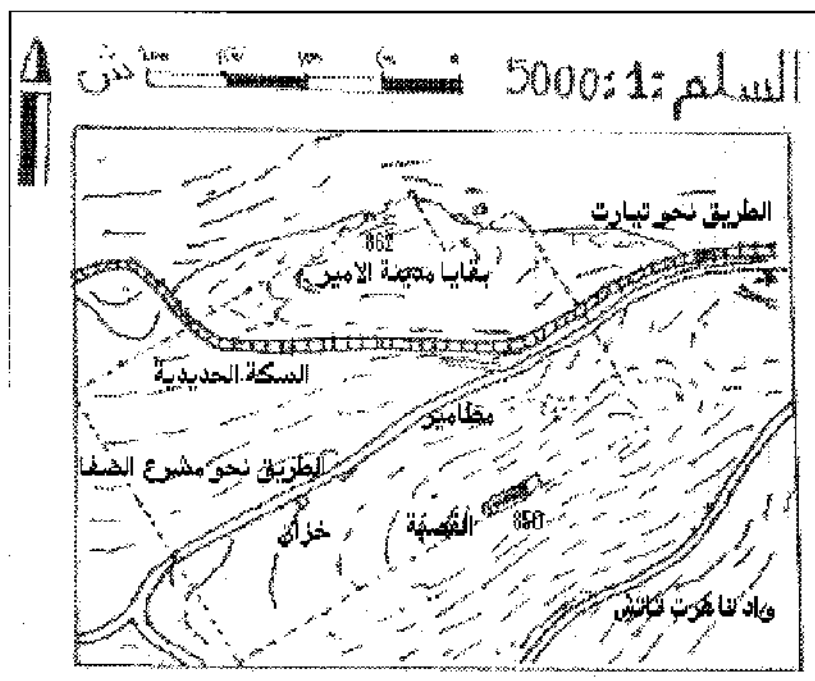 السلم:1:5000
ش
الطريق نحو تيارت
862
بقايا مدينة الامير
السكة الحديدية
مطامير
الطريق نحو مشرع الصفا
القصبة
850
خزان
واد تاهرت ناتش